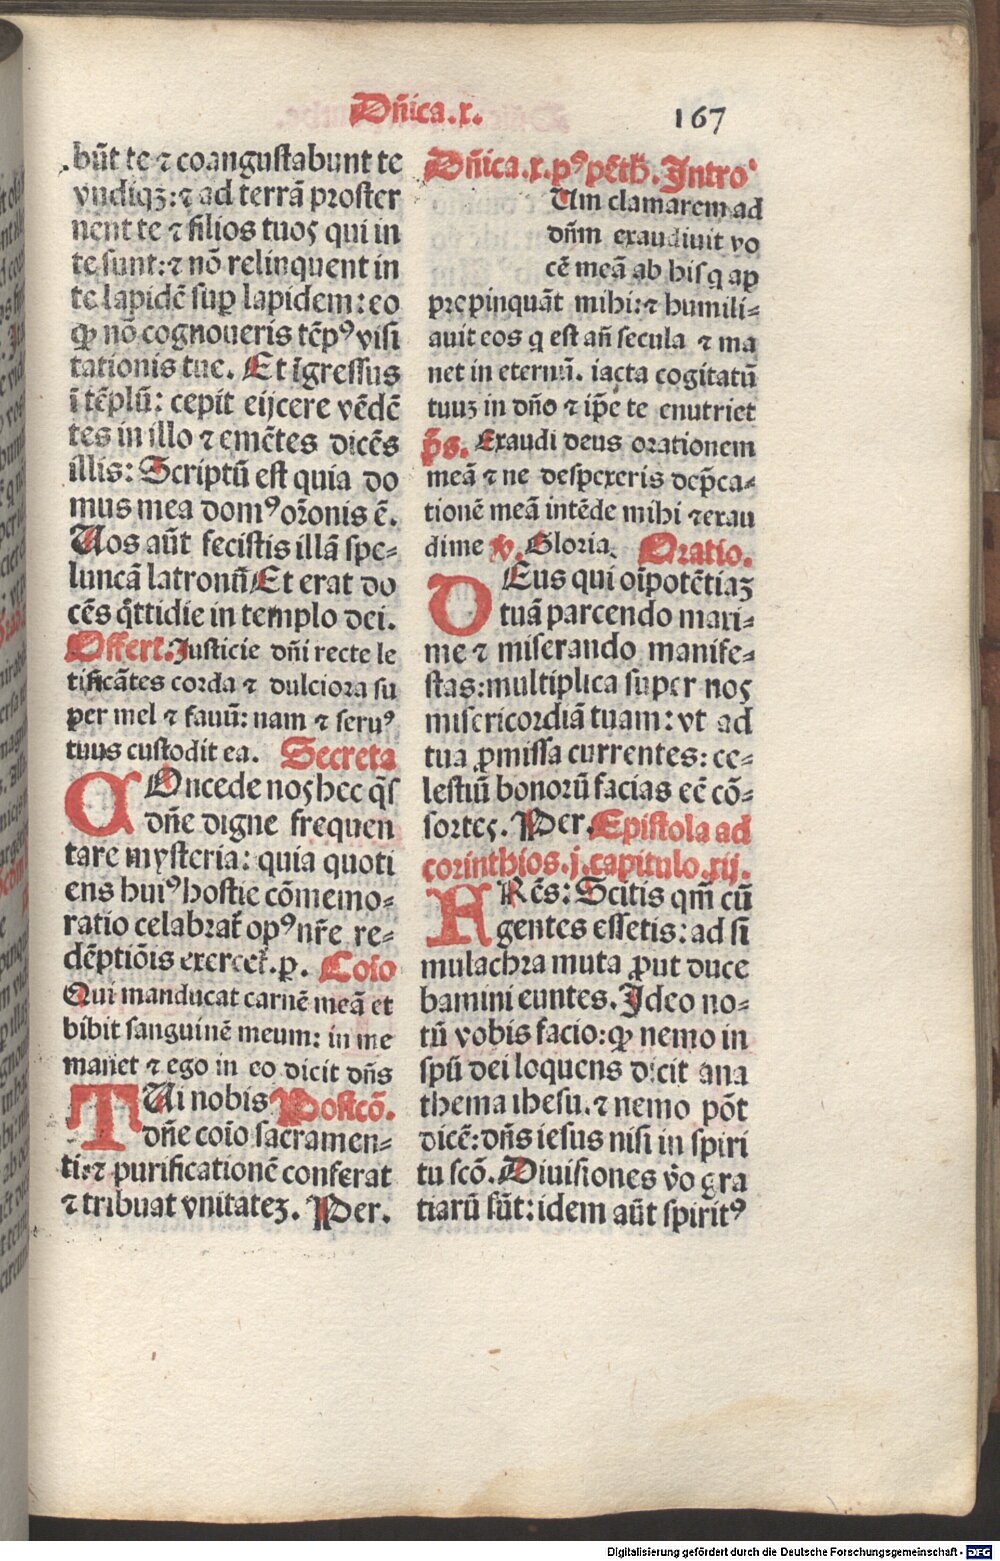 Dñica.x.
167
bũt te ⁊ coangustabunt te
vndiqꝫ: ⁊ ad terrã proster
nent te ⁊ filios tuos qui in
te sunt: ⁊ nõ relinquent in
te lapidẽ suꝑ lapidem: eo
ꝙ nõ cognoueris tẽpꝰ visi
tationis tue. Et ĩgressus
ĩ tẽplũ: cepit eijcere vẽdẽ
tes in illo ⁊ emẽtes dicẽs
illis: Scriptũ est quia do
mus mea domꝰ oꝛonis ẽ.
Uos aũt fecistis illã spe-
luncã latronũ Et erat do
cẽs q̃ttidie in templo dei.
Offert. Iusticie dñi recte le
tificãtes corda ⁊ dulciora su
per mel ⁊ fauũ: nam ⁊ seruꝰ
tuus custodit ea. Secreta
COncede nos hec q̃s
dñe digne frequen
tare mysteria: quia quoti
ens huiꝰ hostie cõmemo-
ratio celabrat̃ opꝰ nr̃e re-
dẽptiõis exercet̃.p. Coĩo
Qui manducat carnẽ meã et
bibit sanguinẽ meum: in me
manet ⁊ ego in eo dicit dñs
TUi nobis Postcõ.
dñe coĩo sacramen-
ti: ⁊ purificationẽ conferat
⁊ tribuat vnitateꝫ. Per.
Dñica.x.pꝰ pẽth. Introꝰ
Um clamarem ad
dñm exaudiuit vo
cẽ meã ab his q ap
prepinquãt mihi: ⁊ humili-
auit eos q est añ secula ⁊ ma
net in eternũ. iacta cogitatũ
tuuꝫ in dño ⁊ ip̃e te enutriet
p̃s. Exaudi deus orationem
meã ⁊ ne despexeris dep̃ca-
tionẽ meã intẽde mihi ⁊ exau
di me v. Gloria. Oratio.
DEus qui oĩpotẽtiaꝫ
tuã parcendo maxi-
me ⁊ miserando manife-
stas: multiplica super nos
misericordiã tuam: vt ad
tua ꝓmissa currentes: ce-
lestiũ bonorũ facias eẽ cõ-
sortes. Per. Epistola ad
corinthios.j.capitulo.xij.
FRẽs: Scitis qm̃ cũ
gentes essetis: ad si
mulachra muta ꝓut duce
bamini euntes. Ideo no-
tũ vobis facio: ꝙ nemo in
spũ dei loquens dicit ana
thema ihesu. ⁊ nemo põt
dicẽ: dñs iesus nisi in spiri
tu scõ. Diuisiones v̊o gra
tiarũ sũt: idem aũt spiritꝰ
Digitalisierung gefördert durch die Deutsche Forschungsgemeinschaft - DFG